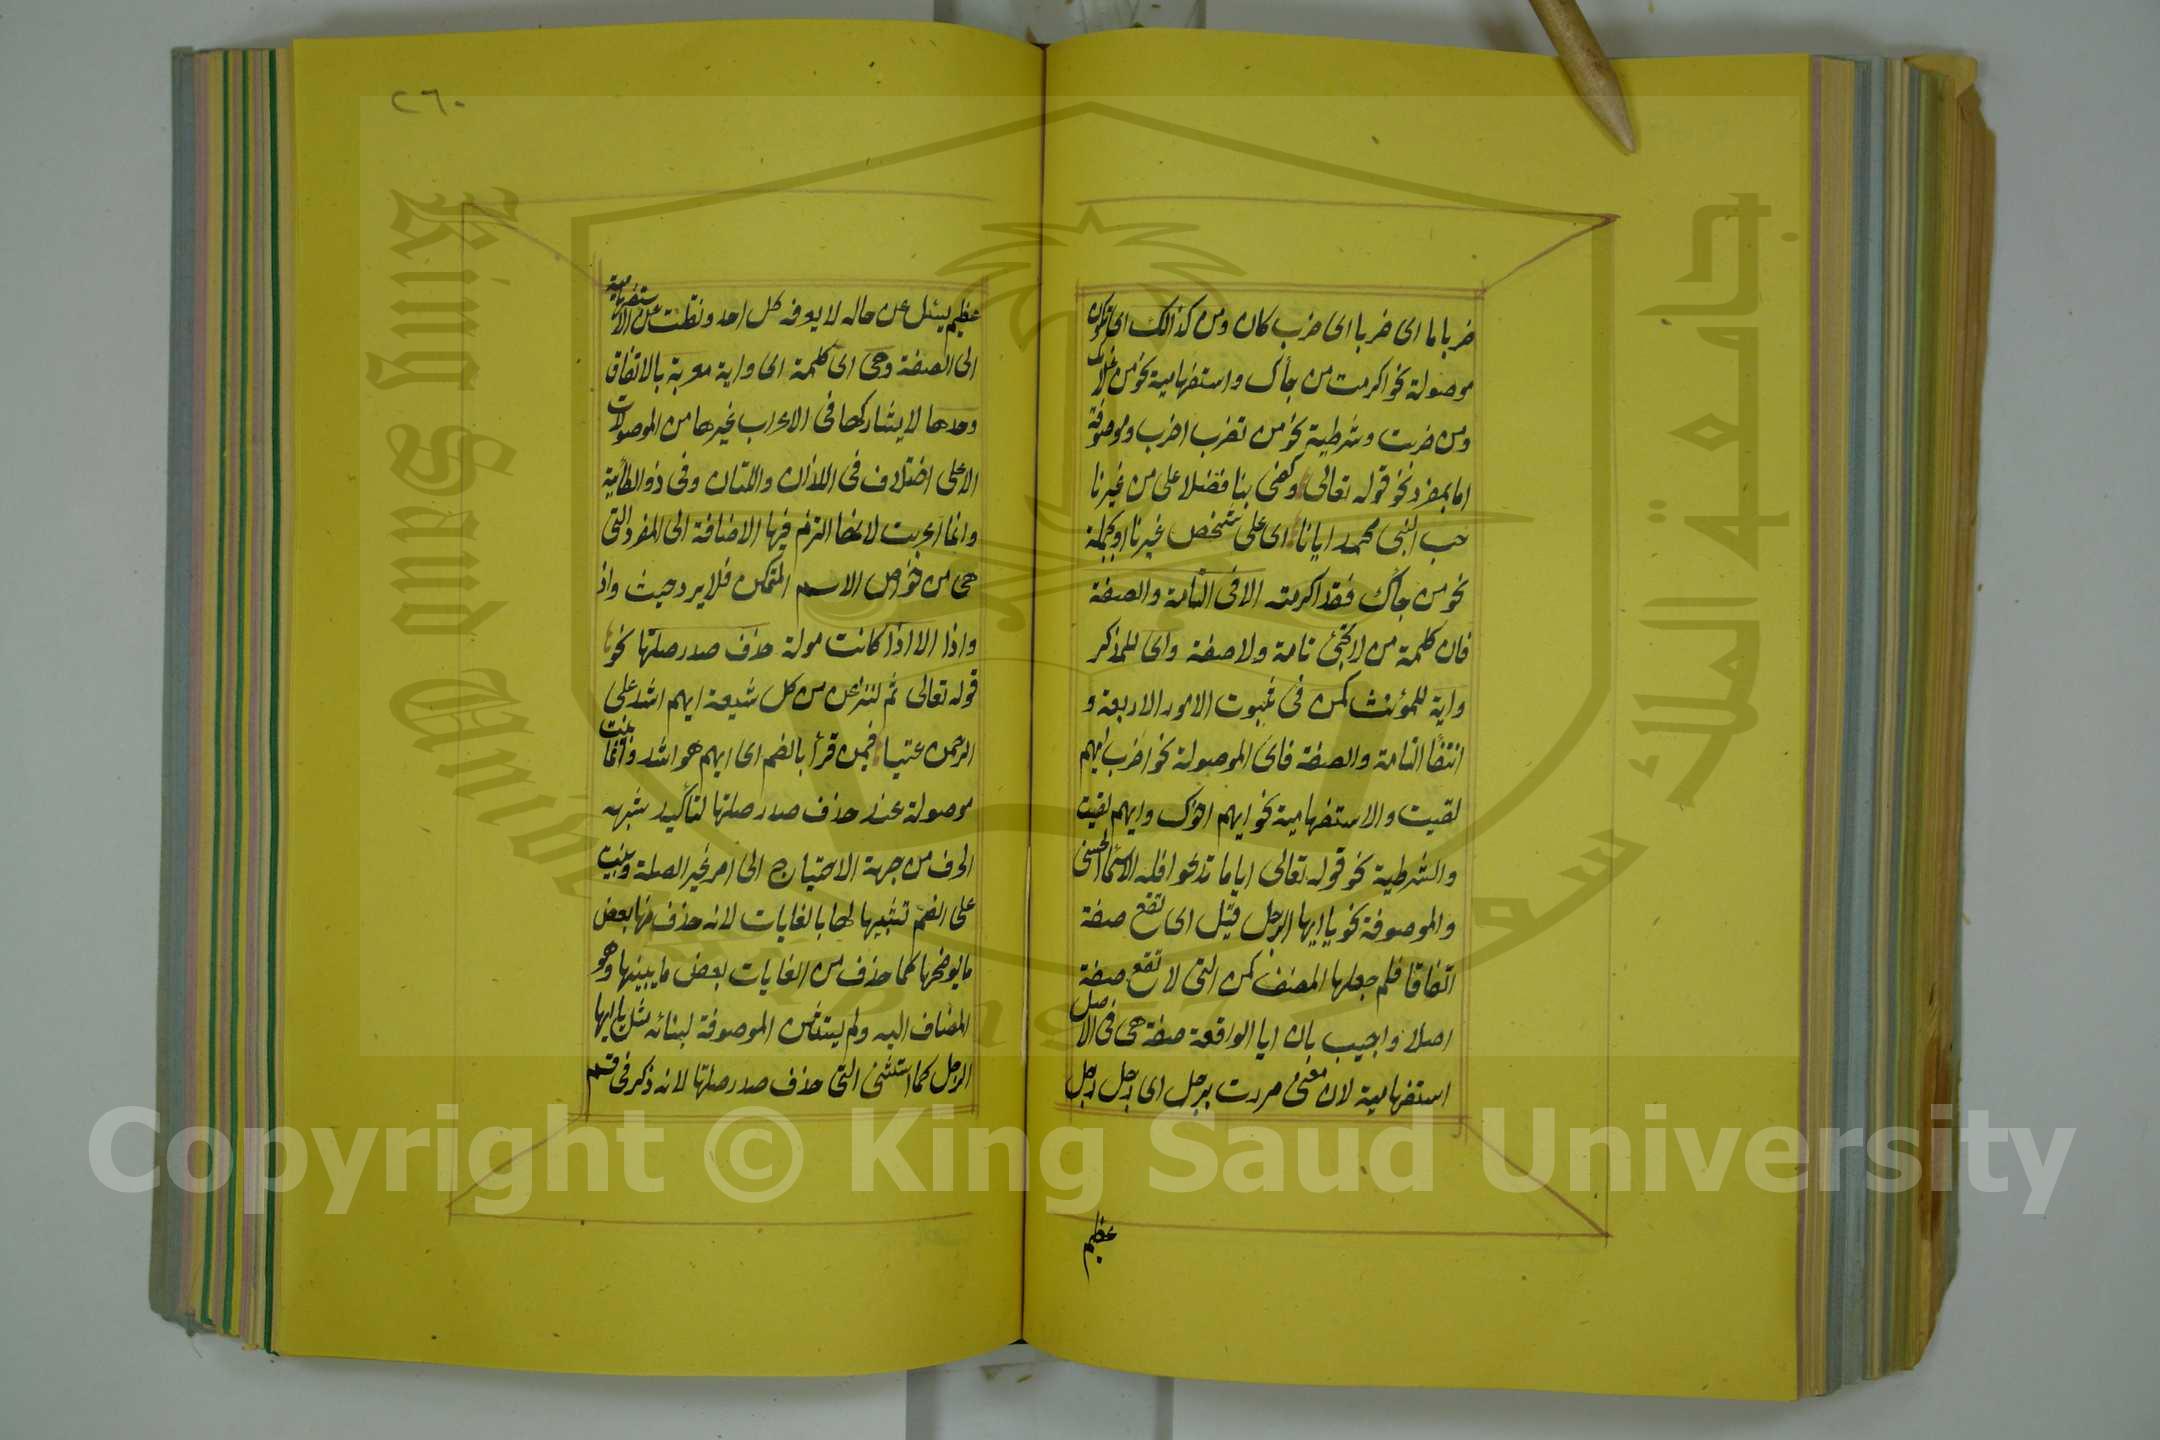 ضربا ما اى ضربا اى ضرب كان ومن كذالك اى تكون
موصولة نحو اكرمت من جأك واستفهامية نحو من غلامك
ومن ضربت وشرطية نحو من تضرب اضرب وموصوفة
اما بمفرد نحو قوله تعالى وكفى بنا فضلا على من غيرنا
حب النبى محمد ايانا اى على شخص غيرنا او بجملة
نحو من جأك فقد اكرمته الا فى التامة والصفة
فان كلمة من لا تجئ تامة ولا صفة واى للمذكر
واية للمؤنث كمن فى ثبوت الامور الاربعة و
انتفأ التامة والصفة فاى الموصولة نحو اضرب ايهم
لقيت والاستفهامية نحو ايهم اخوك وايهم لقيت
والشرطية نحو قوله تعالى اياما تدعوا فله الاسمأ الحسنى
والموصوفة نحو يا ايها الرجل قيل اى تقع صفة
اتفاقا فلم جعلها المصنف كمن التى لا تقع صفة
اصلا واجيب بان ايا الواقعة صفة هى فى الاصل
استفهامية لان معنى مررت برجل اى رجل رجل
عظيم
٢٦٠
عظيم يسئل عن حاله لا يعرفه كل احد ونقلت عن الاستفهامية
الى الصفة وهى اى كلمة اى واية معربة بالاتفاق
وحدها لا يشاركها فى الاعراب غيرها من الموصولات
الا على اختلاف فى اللذان واللتان وفى ذو الطائية
وانما اعربت لانها التزم فيها الاضافة الى المفرد التى
هى من خواص الاسم المتمكن فلا يرد حيث واذ
واذا الا اذا كانت مولة حذف صدر صلتها نحو
قوله تعالى ثم لننزعن من كل شيعة ايهم اشد على
الرحمن عتيا فيمن قرأ بالضم اى ايهم هو اشد وانما بنت
موصولة عند حذف صدر صلتها لتأكيد شبهه
الحرف من جهة الاحتياج الى امر غير الصلة وبنيت
على الضم تشبيها لها بالغايات لانه حذف منها بعض
ما يوضحها كما حذف من الغايات بعض ما يبينها وهو
المضاف اليه ولم يستثن الموصوفة لبنائه مثل يا ايها
الرجل كما استثنى التى حذف صدر صلتها لانه ذكر فى قسم
جامعة الملك سعود
King Saud University
Copyright © King Saud University